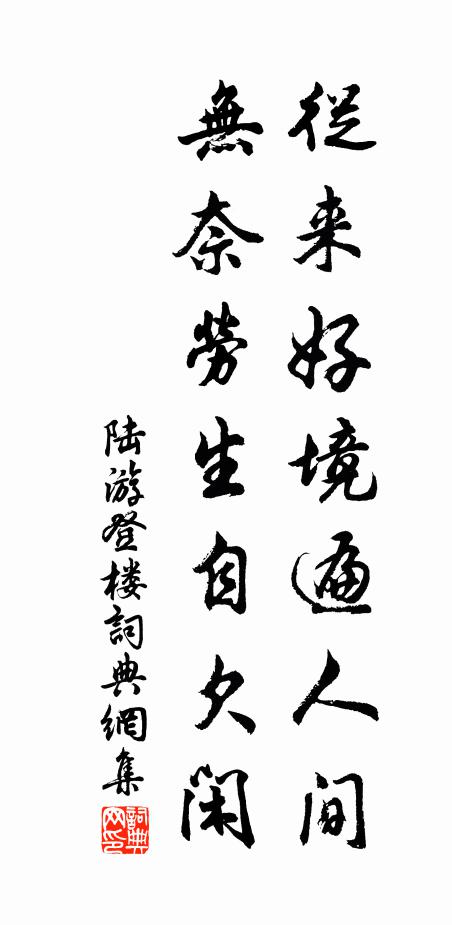 從来好境遍人间
無奈勞生自欠闲
陆游登楼詞典網集
詞典网印